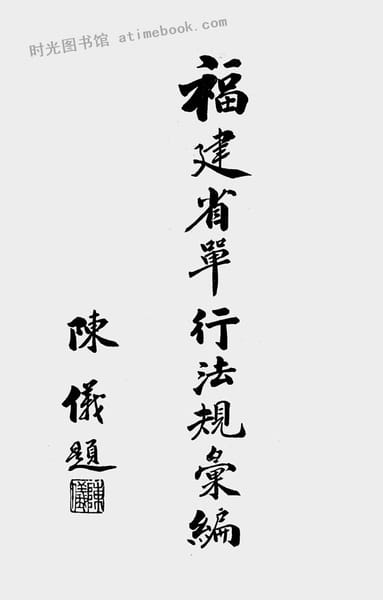 时光图书馆 atimebook.com
福建省單行法規彙編
陳儀題
陳儀